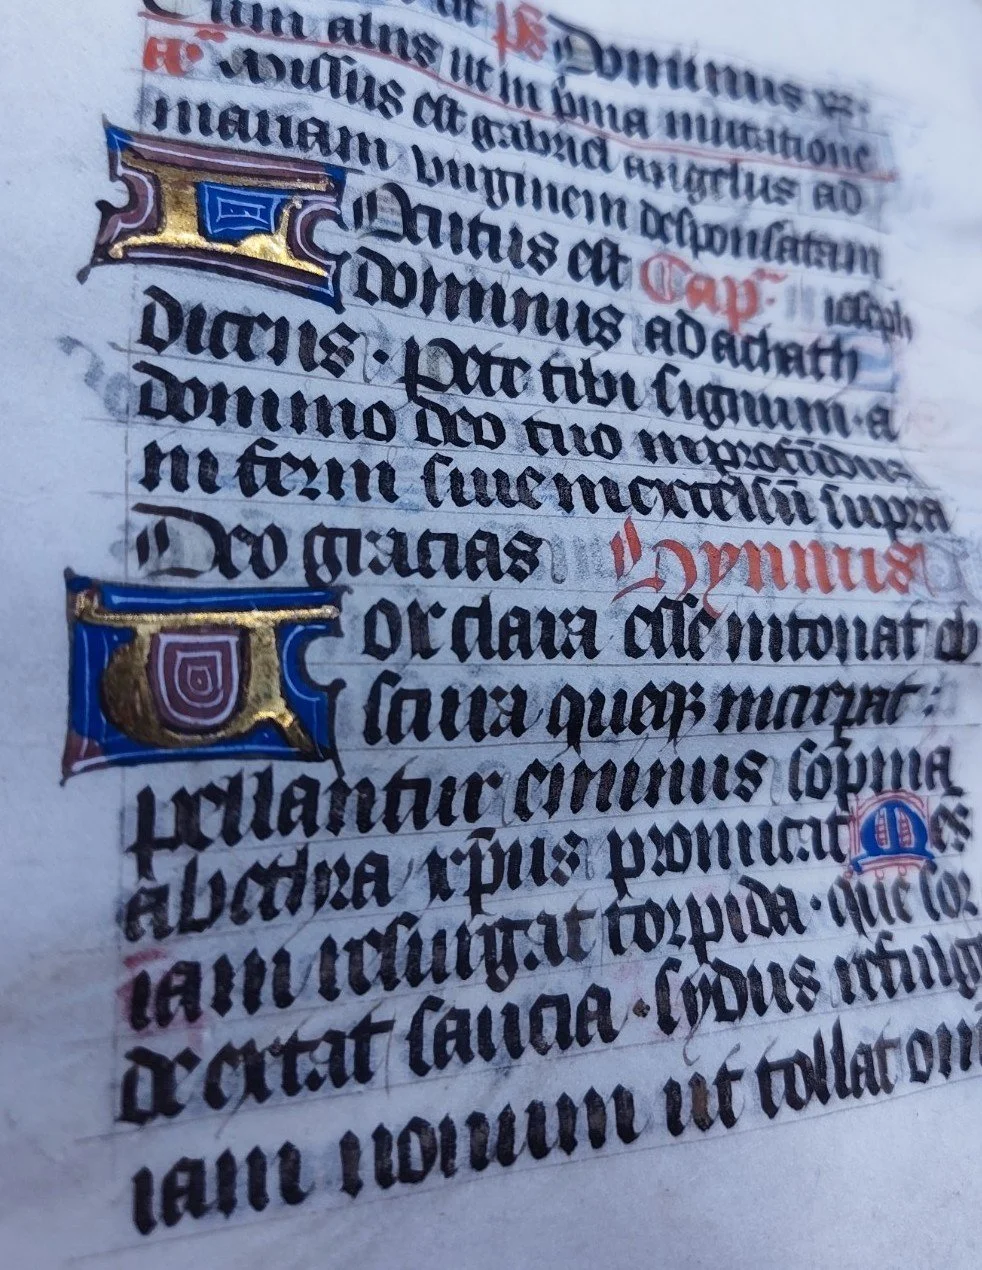 Cum aliis ut in p̄ma mutatione
A. Missus est gabriel angelus ad
mariam virginem desponsatam
Locutus est Cap̄. ioseph
dominus ad achath
dicens · Pete tibi signum · a
domino deo tuo in profūdum
in ferni siue in excelsū supra
Deo gracias Hymnus
Uox clara esse intonat ob
scura queq; increpat :
pellantur eminus sompnia
ab ethra xp̄us promicat Mes
iam resurgat torpida · que sor
de extat saucia · sydus refulg
iam nouum ut tollat om